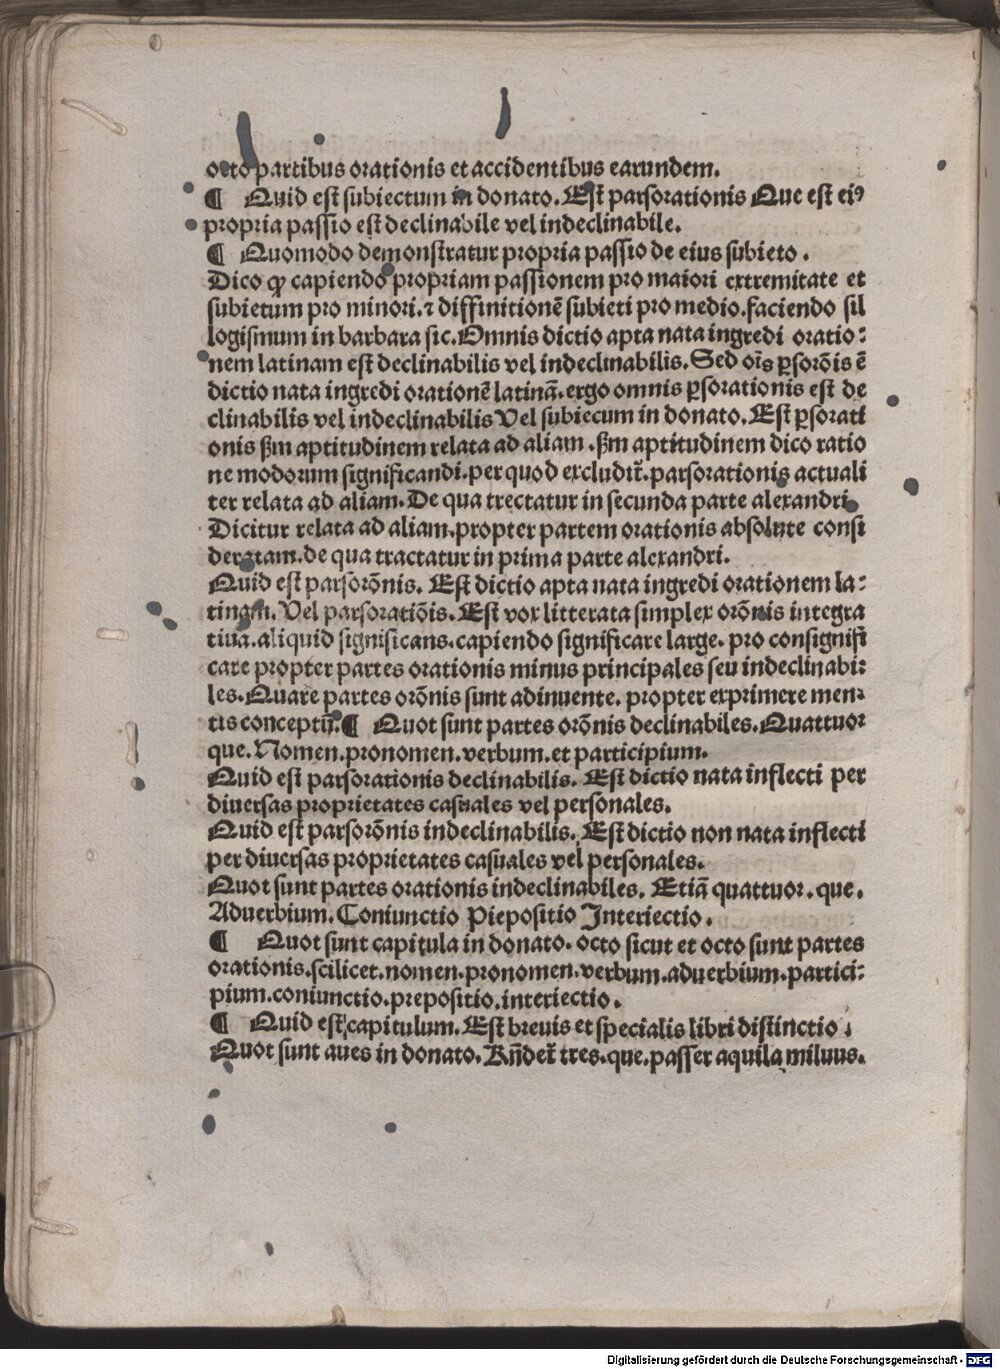 octo partibus orationis et accidentibus earundem.
¶ Quid est subiectum in donato. Est parsorationis Que est eiꝰ
propria passio est declinabile vel indeclinabile.
¶ Quomodo demonstratur propria passio de eius subieto .
Dico ꝙ capiendo propriam passionem pro maiori extremitate et
subietum pro minori. ⁊ diffinitionē subieti pro medio. faciendo sil
logismum in barbara sic. Omnis dictio apta nata ingredi oratio⸗
nem latinam est declinabilis vel indeclinabilis. Sed oīs ꝑsorōis ē
dictio nata ingredi orationē latinā. ergo omnis ꝑsorationis est de
clinabilis vel indeclinabilis Vel subiecum in donato. Est ꝑsorati
onis ẜm aptitudinem relata ad aliam . ẜm aptitudinem dico ratio
ne modorum significandi. per quod excludit᷑. parsorationis actuali
ter relata ad aliam. De qua trectatur in secunda parte alexandri.
Dicitur relata ad aliam. propter partem orationis absolute consi
deratam. de qua tractatur in prima parte alexandri.
Quid est parsorōnis. Est dictio apta nata ingredi orationem la⸗
tinam. Vel parsoratiōis. Est vox litterata simplex orōnis integra
tiua. aliquid significans. capiendo significare large. pro consignifi
care propter partes orationis minus principales seu indeclinabi⸗
les. Quare partes orōnis sunt adinuente. propter exprimere men⸗
tis conceptū. ¶ Quot sunt partes orōnis declinabiles. Quattuor
que. Nomen. pronomen. verbum. et participium.
Quid est parsorationis declinabilis. Est dictio nata inflecti per
diuersas proprietates casuales vel personales.
Quid est parsorōnis indeclinabilis. Est dictio non nata inflecti
per diuersas proprietates casuales vel personales.
Quot sunt partes orationis indeclinabiles. Etiā quattuor. que.
Aduerbium. Coniunctio Piepositio Interiectio .
¶ Quot sunt capitula in donato. octo sicut et octo sunt partes
orationis. scilicet. nomen. pronomen. verbum. aduerbium. partici⸗
pium. coniunctio. prepositio. interiectio .
¶ Quid est capitulum. Est breuis et specialis libri distinctio .
Quot sunt aues in donato. Rn̄det᷑ tres. que. passer aquila miluus.
Digitalisierung gefördert durch die Deutsche Forschungsgemeinschaft - DFG